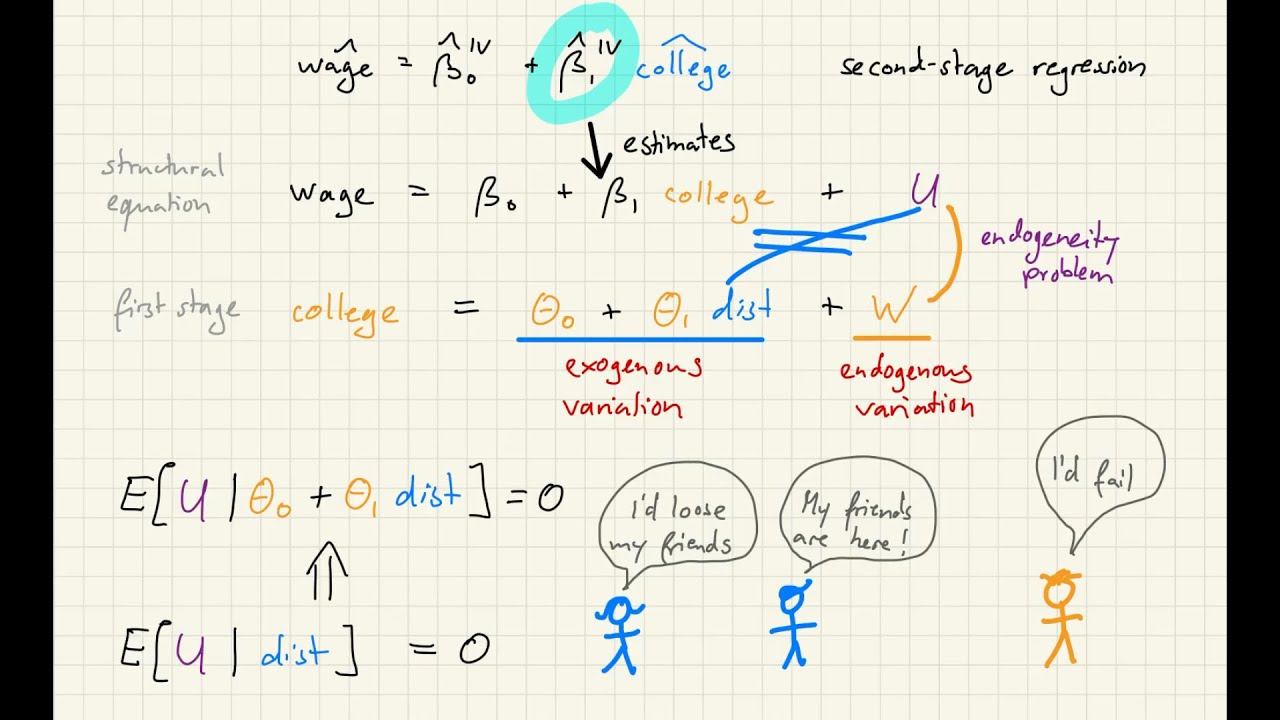 ŵage = β̂₀ᴵⱽ + β̂₁ᴵⱽ college^ second-stage regression
estimates
structural
equation
wage = β₀ + β₁ college + U
endogeneity
problem
first stage college = Θ₀ + Θ₁ dist + W
exogenous
variation
endogenous
variation
E[U | Θ₀ + Θ₁ dist] = 0
⇑
E[U | dist] = 0
I'd loose
my friends
My friends
are here!
I'd fail